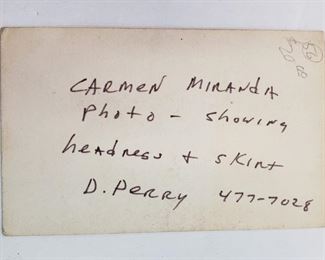 CARMEN MIRANDA
photo - showing
headress + skirt
D. Perry 477-7028